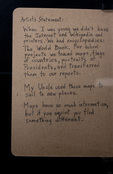 Artist's Statement:
When I was young we didn't have
the Internet and Wikipedia and
printers. We had encyclopedias:
The World Book. For school
projects we traced maps, flags
of countries, portraits of
Presidents, and transferred
them to our reports.
My Uncle used these maps to
sail to new places.
Maps have so much information,
but if you squint you find
something different.